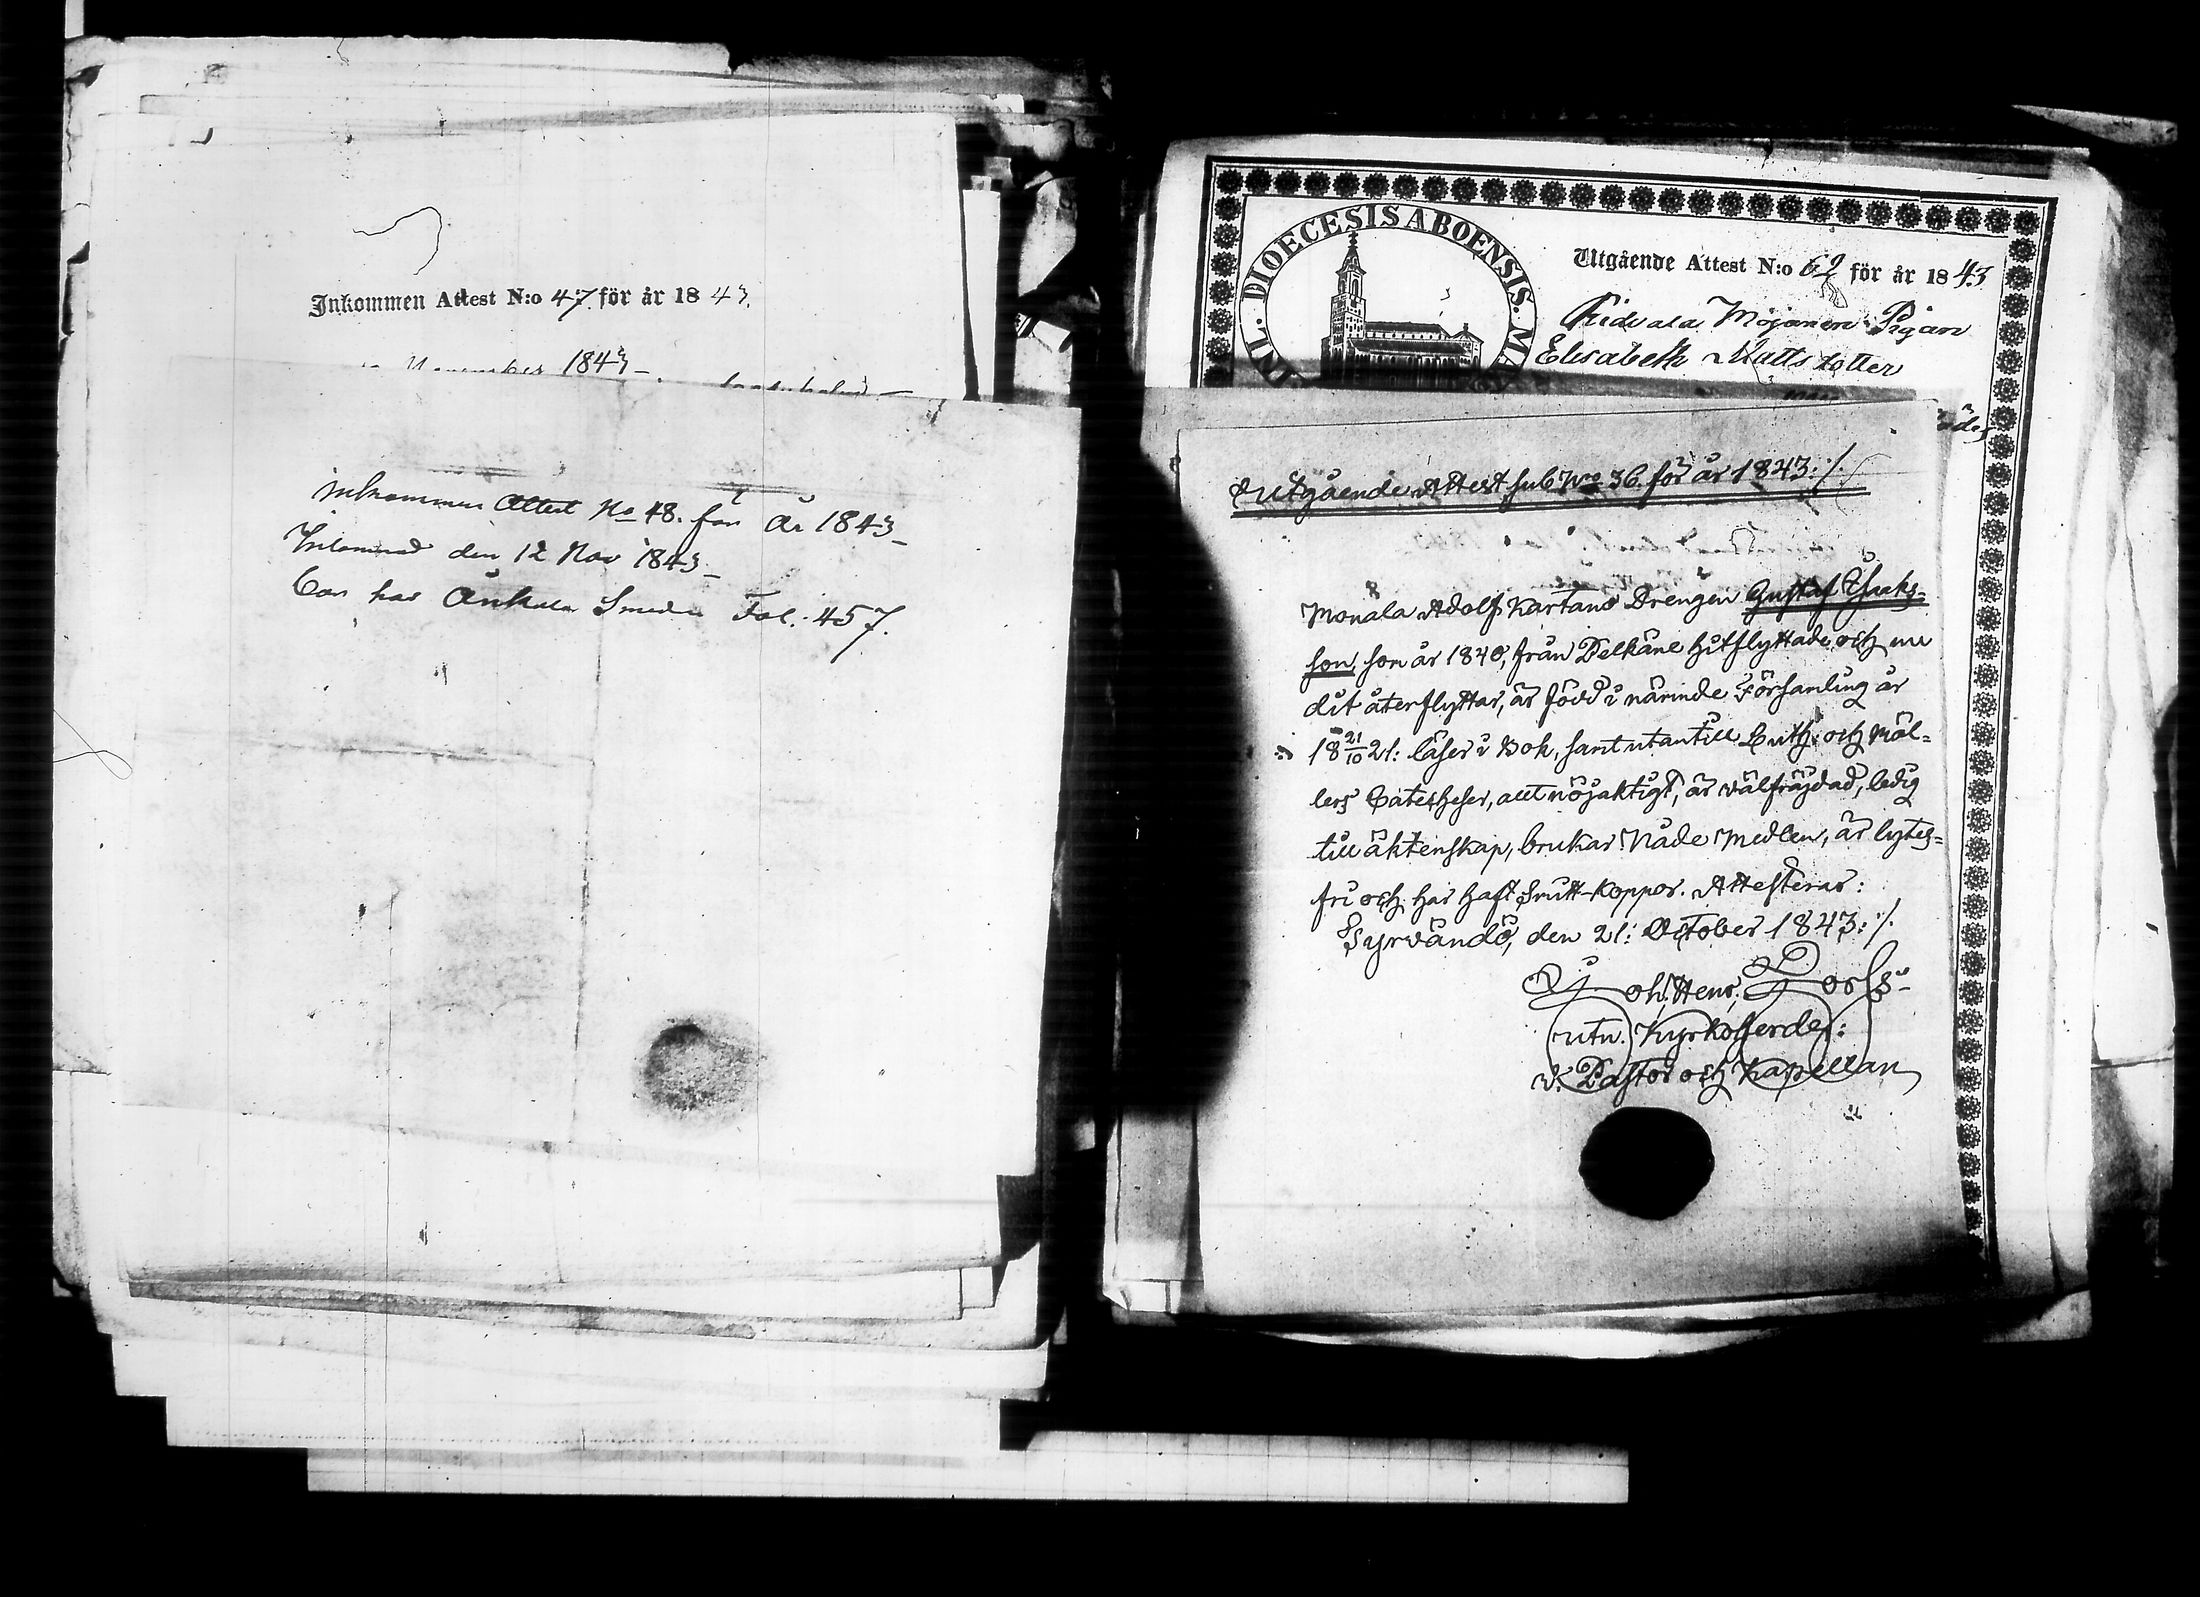 Inkommen Attest N:o 47. för år 1843.
November 1843
Inkommen Attest No 48. för År 1843
Inlemnad den 12 Nov 1843
Fol. 457.
DIOECESIS ABOENSIS.
Utgående Attest N:o 62 för år 1843
Pigan
Elisabeth Mattsdotter
Utgående Attest sub No 36. för år 1843:/.
Monala Adolf Kartano Drengen Gustaf Isaks=
son, som år 1840, från Pelkäne hitflyttade och nu
dit återflyttar, är född i närmde Församling år
18 21/10 21: läser i Bok, samt utantill Luth: och Möl=
lers Catecheser, allt nöjaktigt, är välfräjdad, ledig
till äktenskap, brukar Nåde Medlen, är lytes=
fri och har haft Smitt-Koppor. Attesteras:
Syrvändö, den 21: October 1843:/.
Joh: Henr:
utn. Kyrkoherde:
v. Pastor och Kapellan